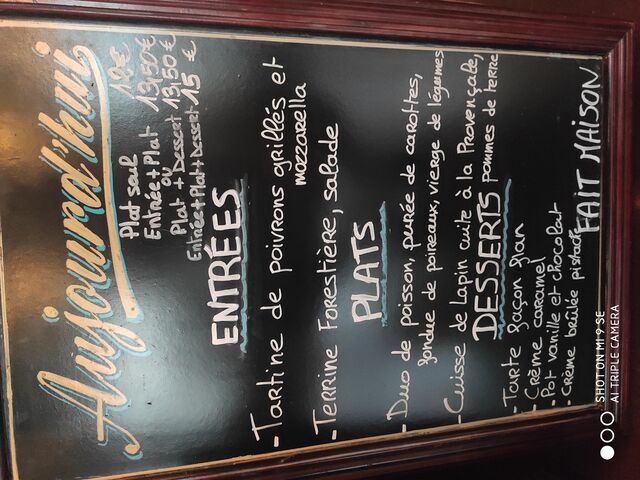 Aujourd'hui
Plat seul 12€
Entrée + Plat 13,50€
ou
Plat + Dessert 13,50€
Entrée + Plat + Dessert 15€
ENTRÉES
- Tartine de poivrons grillés et
mozzarella
- Terrine Forestière, salade
PLATS
- Duo de poisson, purée de carottes,
fondue de poireaux, vierge de légumes
- Cuisse de lapin cuite à la Provençale,
pommes de terre
DESSERTS
- Tarte façon flan
- Crème caramel
- Pot vanille et chocolat
- Crème brûlée pistache
FAIT MAISON
SHOT ON MI 9 SE
AI TRIPLE CAMERA